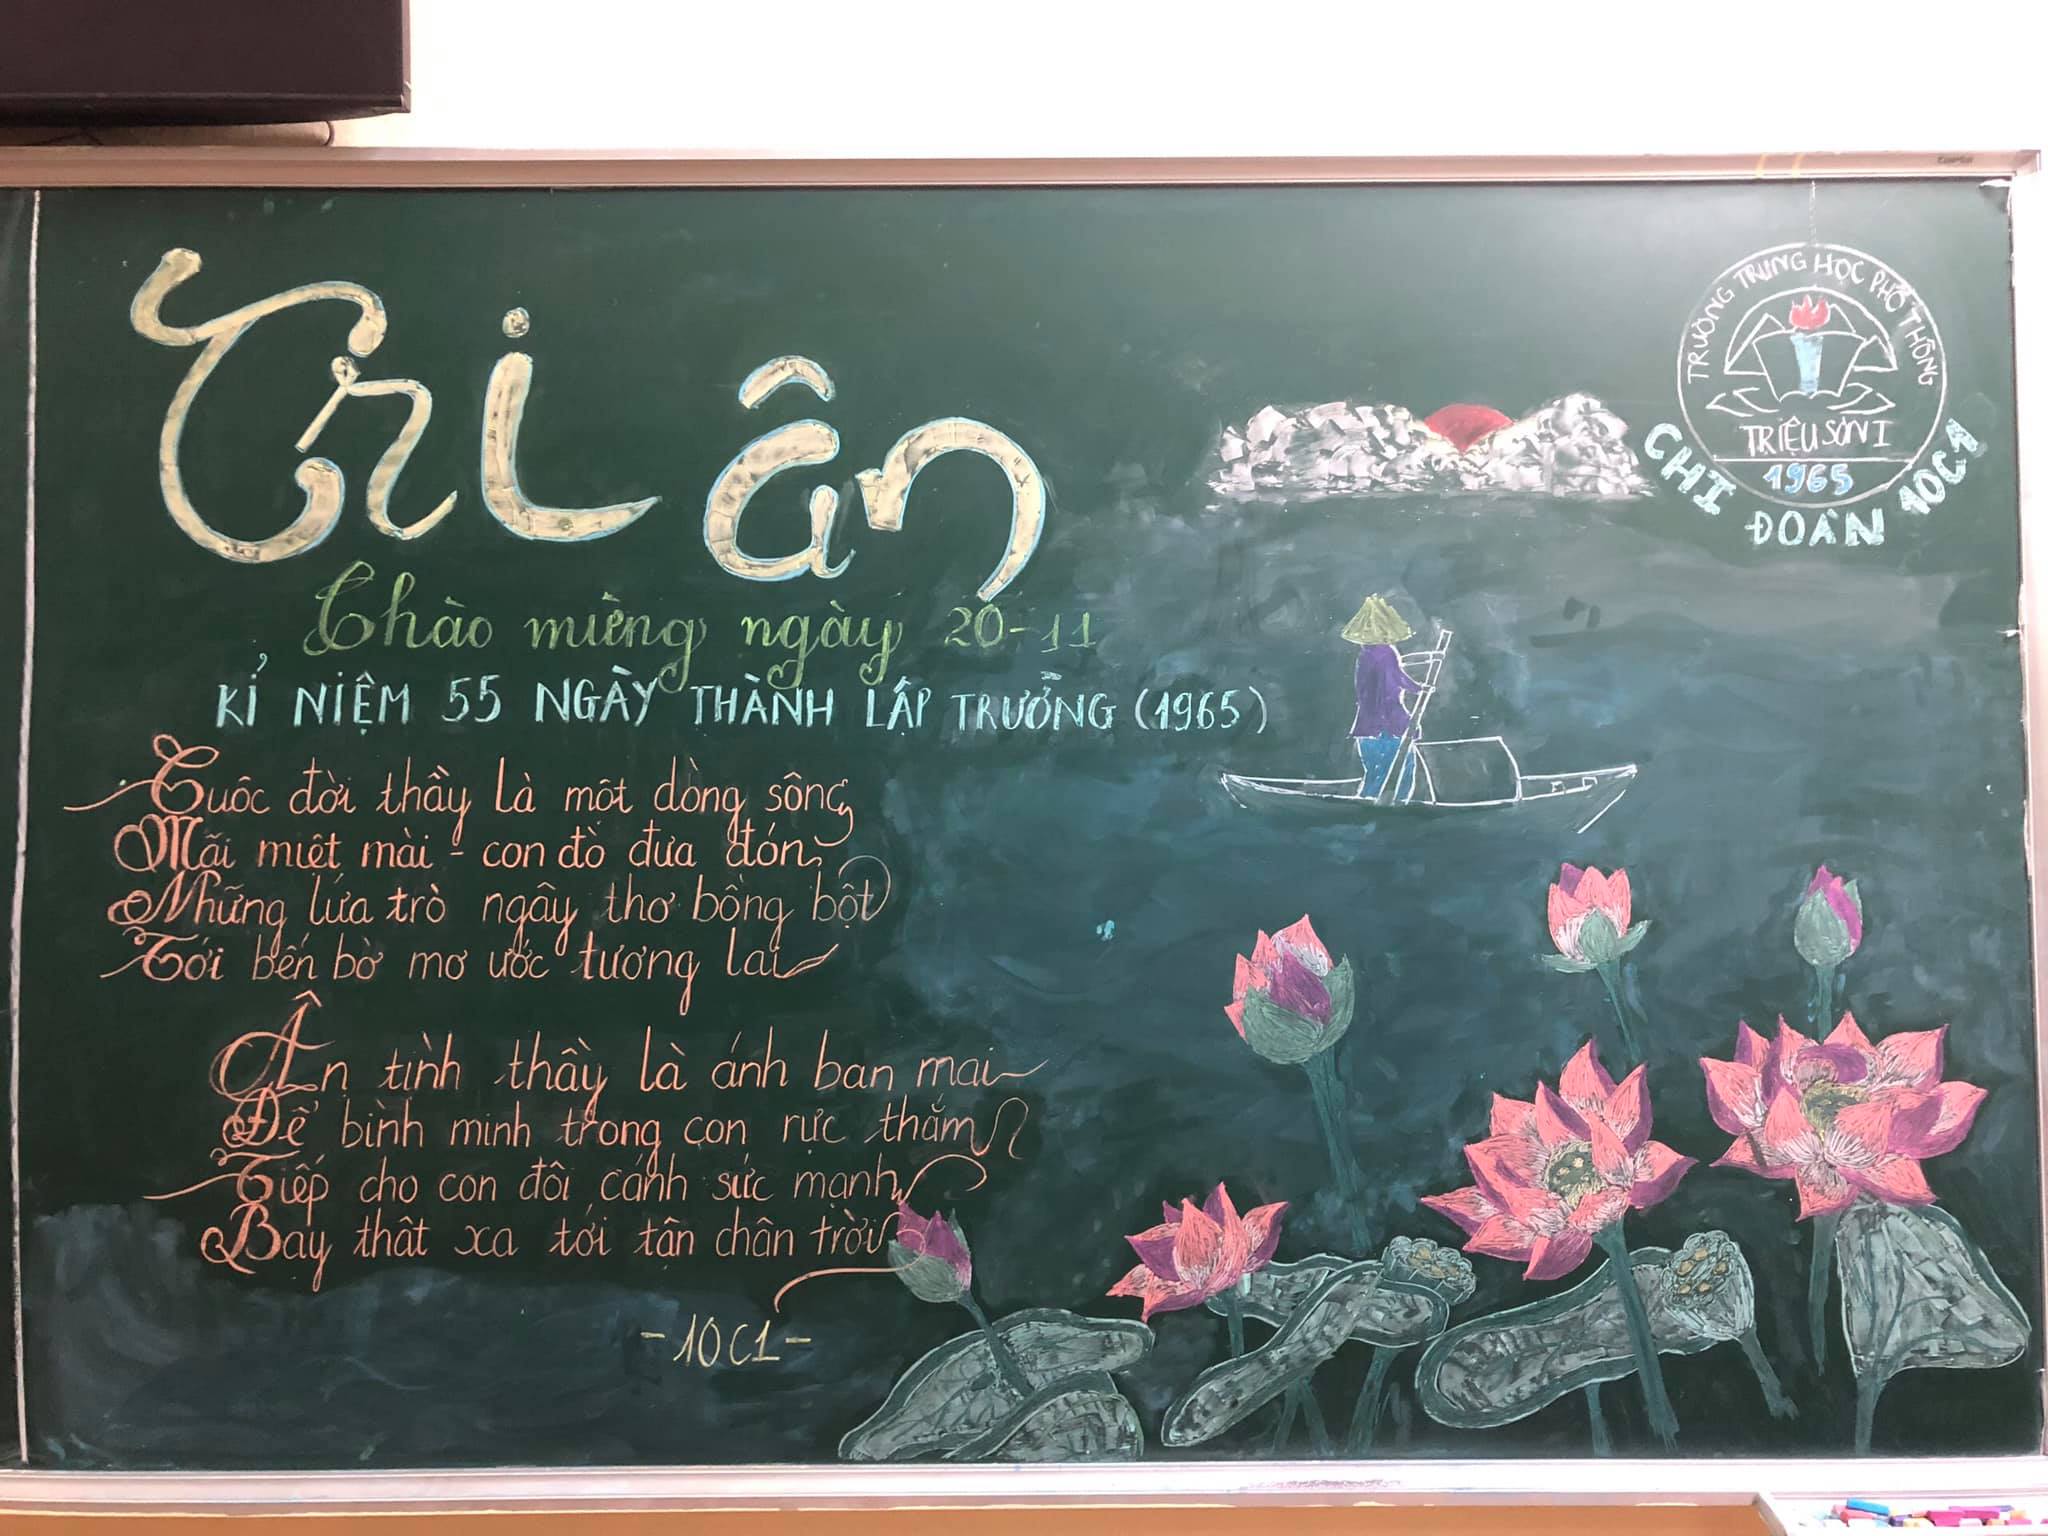 Tri ân
Chào miềng ngày 20-11
KỈ NIỆM 55 NGÀY THÀNH LẬP TRƯỜNG (1965)
Cuôc đời thầy là một dòng sông
Mãi miệt mài - con đò đưa đón
Những lứa trò ngây thơ bồng bột
Tới bến bờ mơ ước tương lai
Ân tình thầy là ánh ban mai
Để bình minh trong con rực thắm
Tiếp cho con đôi cánh sức mạnh
Bay thât xa tới tân chân trời
-10C1-
TRƯỜNG TRUNG HỌC PHỔ THÔNG
TRIỆU SƠN I
1965
CHI ĐOÀN 10C1